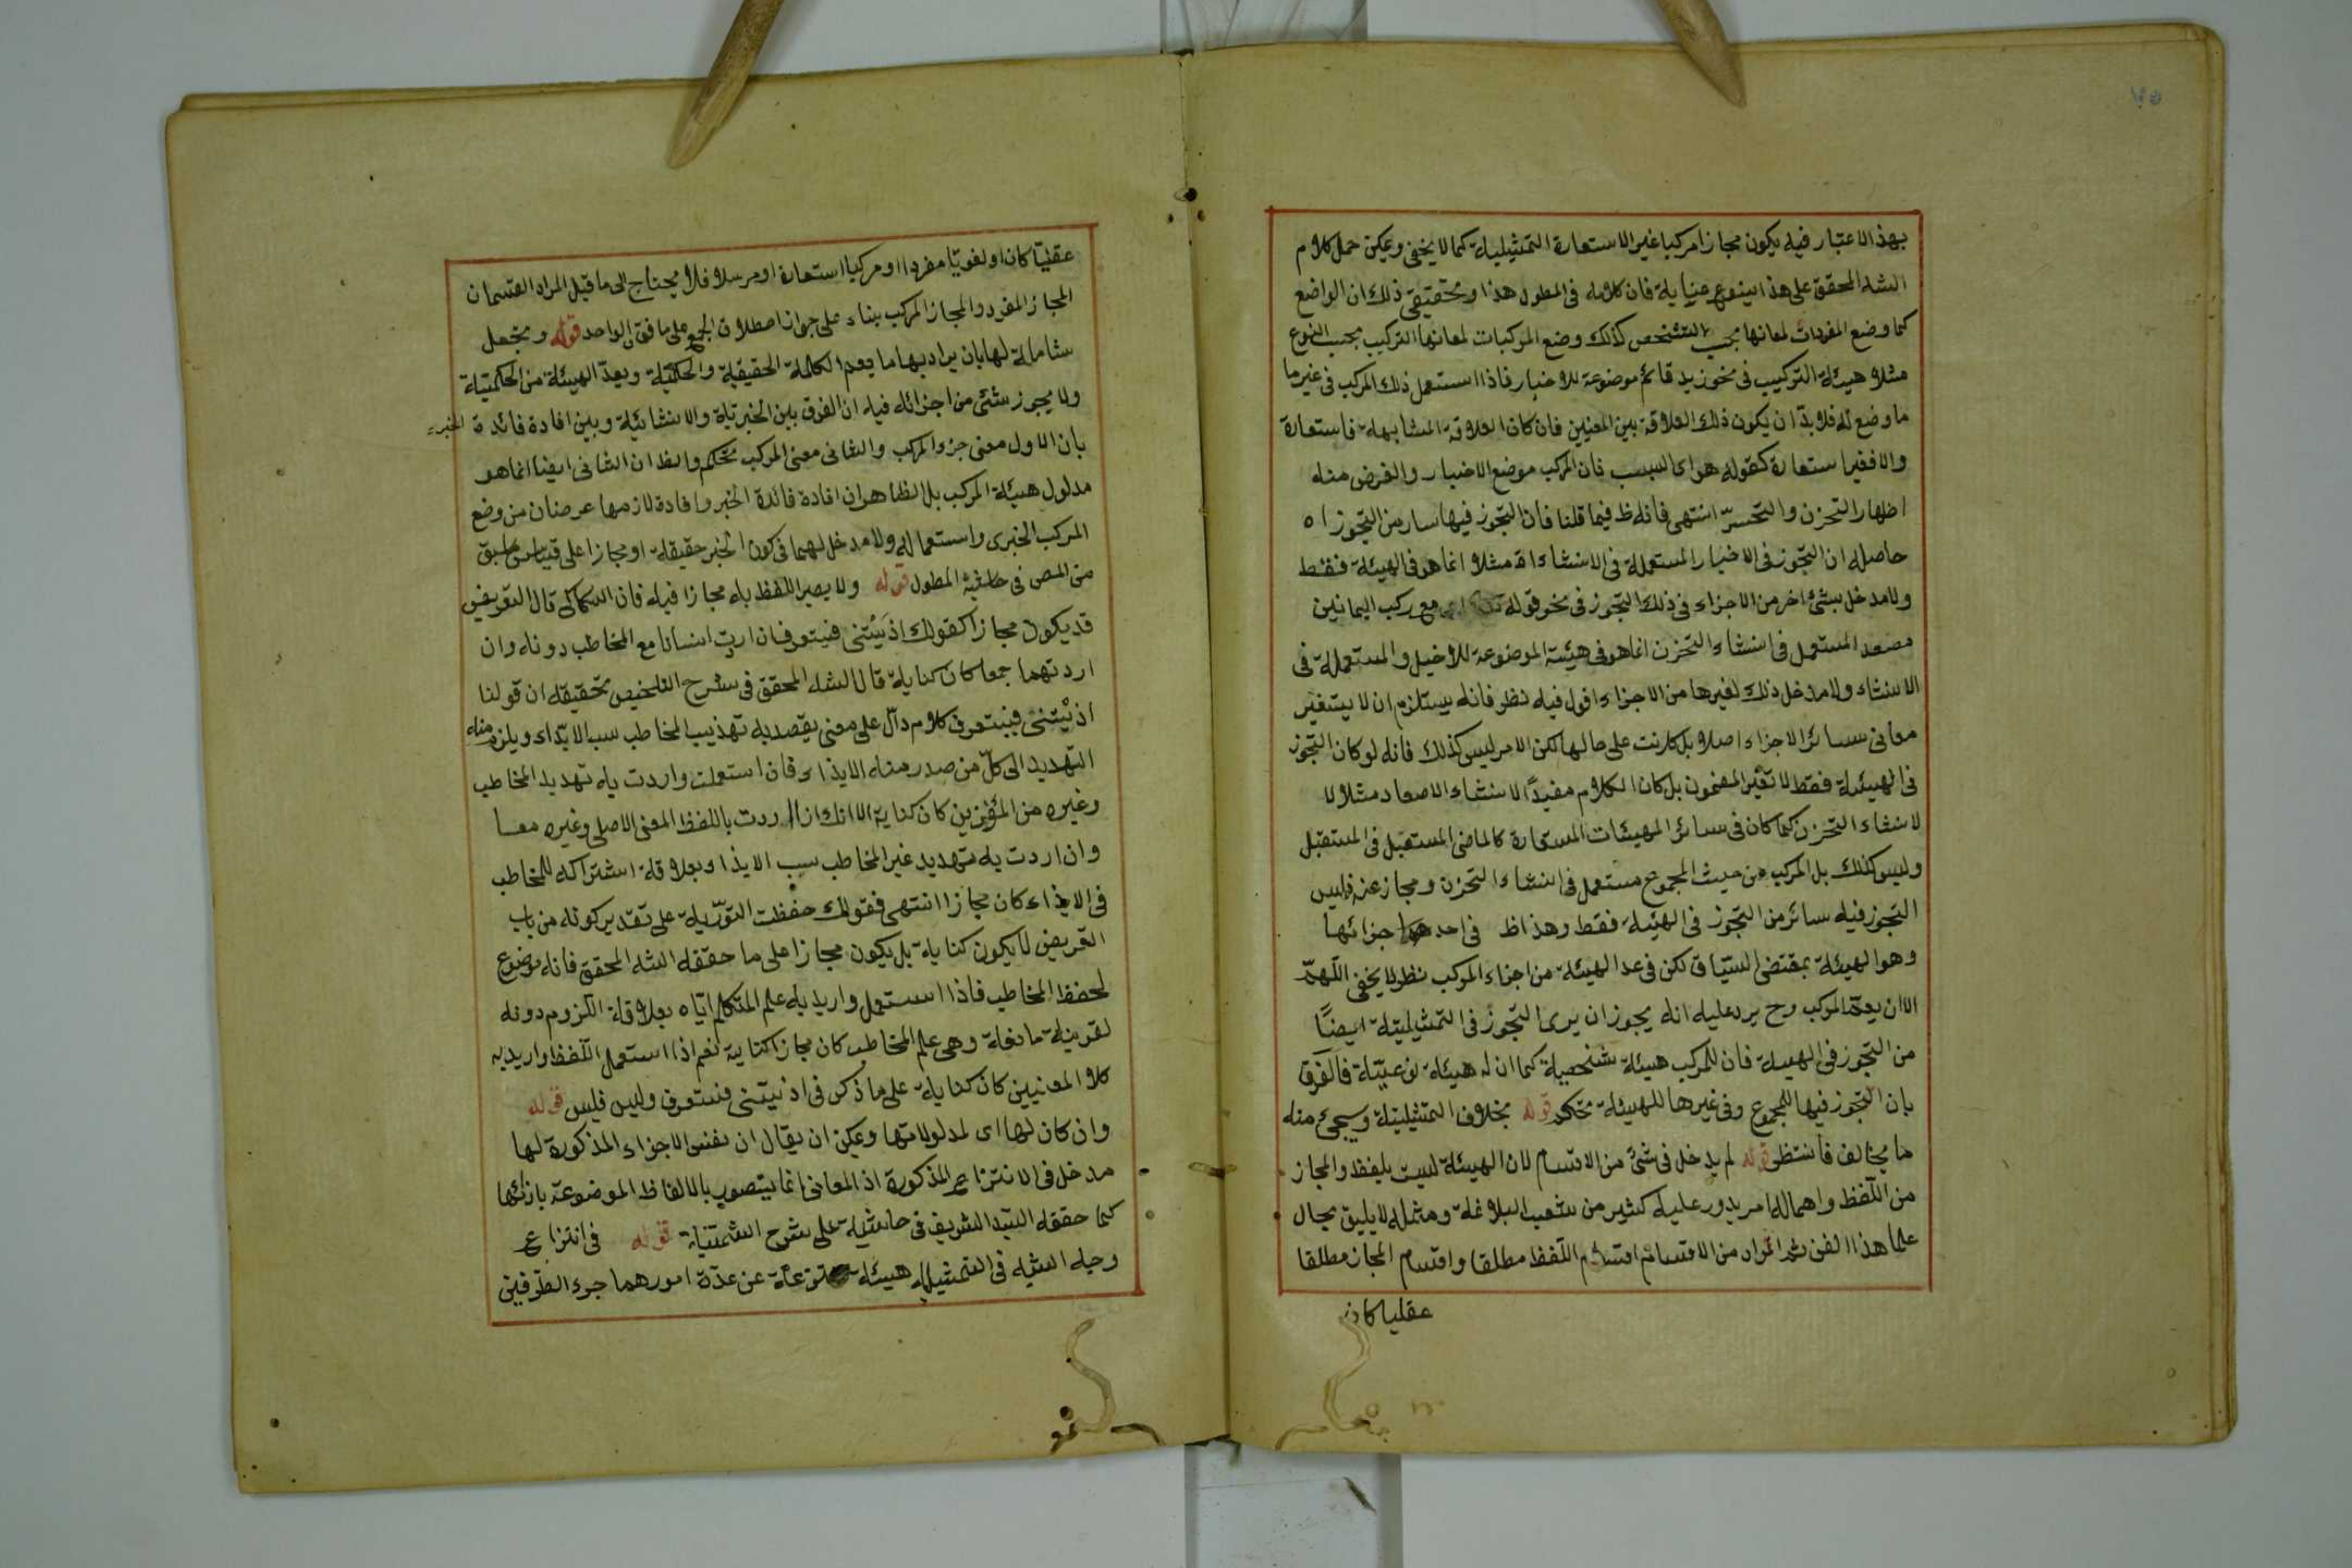 ٧٥
بهذا الاعتبار فيه يكون مجازا مركبا غير الاستعارة التمثيلية كما لا يخفى ويمكن حمل كلام
الشه المحقق على هذا بنوع عناية فان كلامه فى المطول هذا وتحقيق ذلك ان الواضع
كما وضع المفردات لمعانيها بحسب التشخص كذلك وضع المركبات لمعانيها التركيب بحسب النوع
مثلا هيئة التركيب فى نحو زيد قائم موضوعة للاخبار فاذا استعمل ذلك المركب فى غير ما
ما وضع له فلا بدّ ان يكون ذلك العلاقة بين المعنيين فان كان العلاقة المشابهة فاستعارة
والا فغير استعارة كقوله هواى السبب فان المركب موضع الاخبار والغرض منه
اظهار التحزن والتحسرّ انتهى فانه ظ فيما قلنا فان التجوز فيها سار من التجوز اه
حاصله ان التجوز فى الاخبار المستعملة فى الانشاءاة مثلا انما هو فى الهيئة فقط
ولا مدخل بشئ اخر من الاجزاء فى ذلك التجوز فى نحو قوله مع ركب اليمانين
مصعد المستعمل فى انشاء التحزن انما هو فى هيئة الموضوعة للاخبل والمستعملة فى
الانشاء ولا مدخل ذلك لغيرها من الاجزاء اقول فيه نظر فانه يستلزم ان لا يتغير
معانى سائر الاجزاء اصلا بل كانت على حالها لكن الامر ليس كذلك فانه لو كان التجوز
فى الهيئة فقط لا تغيّر المضمون بل كان الكلام مفيدًا لانشاء الاصعاد مثلا لا
لانشاء التحزن كما كان فى سائر الهيئات المستعارة كالماضى المستعمل فى المستقبل
وليس كذلك بل المركب من حيث المجموع مستعمل فى انشاء التحزن ومجاز عنه فليس
التجوز فيه سائر من التجوز فى الهيئة فقط وهذا ظ فى احد اجزائها
وهو الهيئة بمقتضى السّياق لكن فى عد الهيئة من اجزاء المركب نظر لا يخفى اللّهمّ
الا ان يعمّ المركب وح يرد عليه انه يجوز ان يرى التجوز فى التمثيليّة ايضًا
من التجوز فى الهيئة فان للمركب هيئة شخصية كما ان له هيئة نوعيّة فالفرق
بان التجوز فيها للمجموع وفى غيرها للهيئة تحكم قوله بخلاف التمثيليّة وسيجئ منه
ما يخالف فانتظر قوله لم يدخل فى شئ من الاقسام لان الهيئة ليست بلفظ والمجاز
من اللّفظ واهماله امر يدور عليه كثير من شعب البلاغة ومثمله لا يليق بحال
علما هذا الفن ثم المراد من الاقسام اقسام اللفظ مطلقا واقسام المجاز مطلقا
عقليا كان
عقليّا كان او لغويّا مفردا او مركبا استعارة او مرسلا فلا يحتاج الى ما قيل المراد القسمان
المجاز المفرد والمجاز المركب بناء على جواز اطلاق الجمع على ما فوق الواحد قوله ويجعل
شاملة لها بان يراد بها ما يعم الكلمة الحقيقية والحكميّة ويعدّ الهيئة من الحكميّة
ولا يجوز شئ من اجزائه فيه ان الفرق بين الخبريّة والانشائيّة وبين افادة فائدة الخبر
بان الاول معنى جزء المركب والثانى معنى المركب تحكم والظ ان الثانى ايضا انما هو
مدلول هيئة المركب بل الظاهر ان افادة فائدة الخبر وافادة لازمها عرضان من وضع
المركب الخبرى واستعماله ولا مدخل لهما فى كون الخبر حقيقة او مجازا على قياس ما سبق
من المص فى حاشية المطول قوله ولا يصير اللفظ باء مجازا فيه فان السكاكى قال التعريض
قد يكون مجازا كقولك اذيتنى فستعرف ان اردت انسانا مع المخاطب دونه وان
اردتهما جمعا كان كناية قال الشه المحقق فى شرح التلخيص تحقيقه ان قولنا
اذيتنى فستعرف كلام دالّ على معنى يقصد به تهذيب المخاطب سبب الايذاء ويلزم منه
التهديد الى كلّ من صدر منه الايذاء فان استعملت واردت به تهديد المخاطب
وغيره من المؤذين كان كناية الا انك اردت باللفظ المعنى الاصلى وغيره معا
وان اردت به تهديد غير المخاطب سبب الايذا وبعلاقة اشتراكه للمخاطب
فى الايذاء كان مجازا انتهى فقولك حفظت التورية على تقدير كونه من باب
التعريض لا يكون كناية بل يكون مجازا على ما حققه الشه المحقق فانه موضوع
لحفظ المخاطب فاذا استعمل واريد به علم المتكلم ايّاه بعلاقة اللزوم دونه
لقرينة مانعة وهى علم المخاطب كان مجازا كناية نعم اذا استعمل اللفظ واريد به
كلا المعنيين كان كناية على ما ذكر فى اذيتنى فستعرف وليس فليس قوله
وان كان لها اى لمدلولاتها ويمكن ان يقال ان نفس الاجزاء المذكورة لها
مدخل فى الانتزاع المذكورة اذ المعانى انما يتصور بالالفاظ الموضوعة بازائها
كما حققه السّيد الشريف فى حاشية على شرح الشمسيّة قوله فى انتزاع
وجه الشبه فى التمثيل هيئة منتزعة عن عدّة امور هما جزء الطرفين